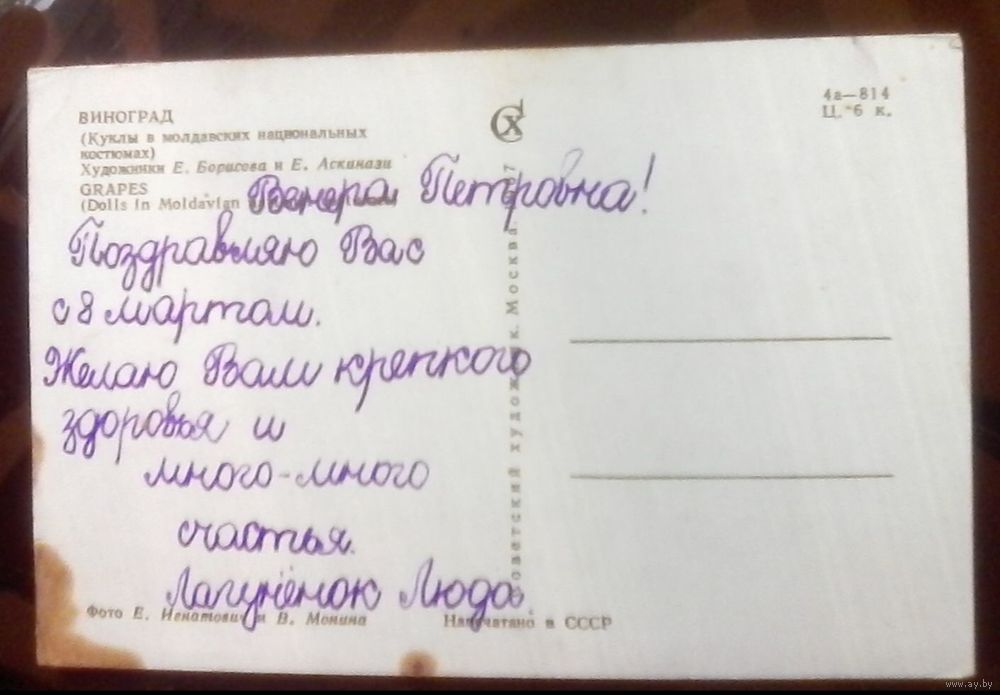 ВИНОГРАД
(Куклы в молдавских национальных
костюмах)
Художники Е. Борисова и Е. Аскинази
GRAPES
(Dolls in Moldavian
4а—814
Ц. 6 к.
Венера Петровна!
Поздравляю Вас
с 8 мартом.
Желаю Вам крепкого
здоровья и
много-много
счастья.
Лагунёнок Люда.
Советский художник. Москва.
Фото Е. Игнатович и В. Монина
Напечатано в СССР
www.ay.by